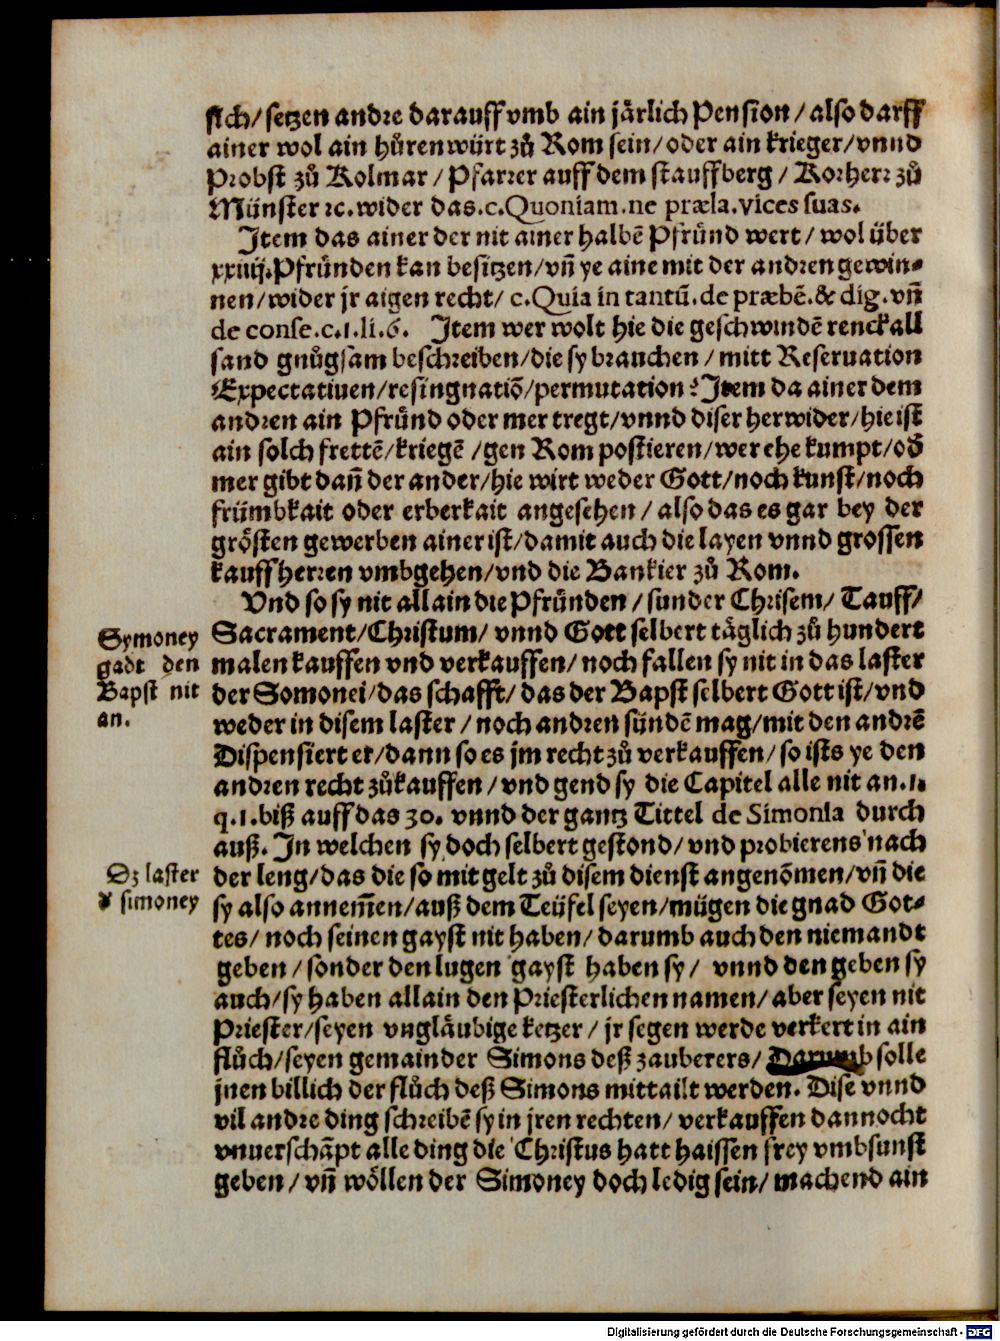 sich/ setzen andre darauff vmb ain jårlich Pension / also darff
ainer wol ain hůrenwürt zů Rom sein/ oder ain krieger/ vnnd
Probst zů Kolmar / Pfarrer auff dem stauffberg / Korherr zů
Münster ꝛc. wider das .c. Quoniam .ne præla. vices suas.
Item das ainer der nit ainer halbẽ Pfründ wert/ wol über
xxiiij. Pfründen kan besitzen/ vñ ye aine mit der andren gewin⸗
nen/ wider jr aigen recht/ c. Quia in tantũ. de præbẽ. & dig. vñ
de conse. c. 1. li. 6. Item wer wolt hie die geschwindẽ renck all
sand gnůgsam beschreiben/ die sy brauchen / mitt Reseruation
Expectatiuen/ resingnatiõ/ permutation? Item da ainer dem
andren ain Pfründ oder mer tregt/ vnnd diser herwider/ hie ist
ain solch frettẽ/ kriegẽ / gen Rom postieren/ wer ehe kumpt/ oð
mer gibt dañ der ander/ hie wirt weder Gott/ noch kunst/ noch
frümbkait oder erberkait angesehen / also das es gar bey der
grösten gewerben ainer ist/ damit auch die layen vnnd grossen
kauffherren vmbgehen/ vnd die Bankier zů Rom.
Vnd so sy nit allain die Pfründen / sunder Chrisem/ Tauff/
Sacrament/ Christum/ vnnd Gott selbert tåglich zů hundert
malen kauffen vnd verkauffen/ noch fallen sy nit in das laster
der Somonei/ das schafft/ das der Bapst selbert Gott ist/ vnd
weder in disem laster / noch andren sündẽ mag/ mit den andrẽ
Dispensiert er/ dann so es jm recht zů verkauffen/ so ists ye den
andren recht zůkauffen / vnd gend sy die Capitel alle nit an. 1.
q. 1. biß auff das 30. vnnd der gantz Tittel de Simonia durch
auß. In welchen sy doch selbert gestond/ vnd probierens nach
der leng/ das die so mit gelt zů disem dienst angenõmen/ vñ die
sy also annem̃en/ auß dem Teüfel seyen/ mügen die gnad Got⸗
tes/ noch seinen gayst nit haben/ darumb auch den niemandt
geben / sonder den lugen gayst haben sy / vnnd den geben sy
auch/ sy haben allain den Priesterlichen namen/ aber seyen nit
Priester/ seyen vnglåubige ketzer / jr segen werde verkert in ain
flůch/ seyen gemain der Simons deß zauberers/ Darumb solle
jnen billich der flůch deß Simons mittailt werden. Dise vnnd
vil andre ding schreibẽ sy in jren rechten/ verkauffen dannocht
vnuerschãpt alle ding die Christus hatt haissen frey vmbsunst
geben / vñ wöllen der Simoney doch ledig sein/ machend ain
Symoney
gadt den
Bapst nit
an.
Dz laster
ð simoney
Digitalisierung gefördert durch die Deutsche Forschungsgemeinschaft - DFG